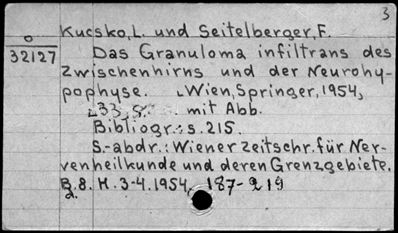 3
Kucsko, L. und Seitelberger, F.
0
32127
Das Granuloma infiltrans des
Zwischenhirns und der Neurohy-
pophyse. Wien, Springer, 1954,
33, S. mit Abb.
Bibliogr.: s. 215.
S.-abdr.: Wiener Zeitschr. für Ner-
venheilkunde und deren Grenzgebiete.
B. 8. H. 3-4. 1954, 187-219